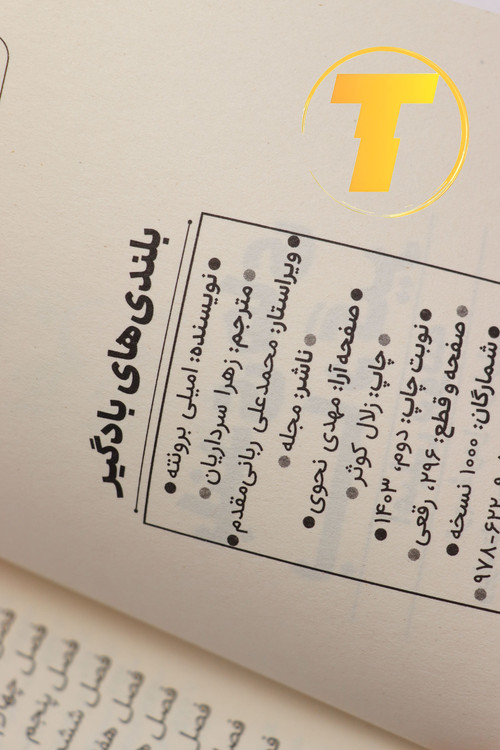 T
بلندی‌های بادگیر
نویسنده: امیلی برونته
مترجم: زهرا سرداریان
ویراستار: محمدعلی ربانی‌مقدم
ناشر: مجله
صفحه‌آرا: مهدی نحوی
چاپ: زلال کوثر
نوبت چاپ: دوم، ۱۴۰۳
صفحه و قطع: ۲۹۶، رقعی
شمارگان: ۱۰۰۰ نسخه
۹۷۸-۶۲۲
فصل
فصل پنجم
فصل
فصل
فصل
فصل